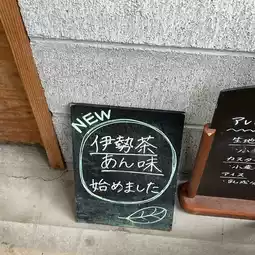 NEW
伊勢茶
あん味
始めました
アレ
生地
小
カスタ
小産
アイス